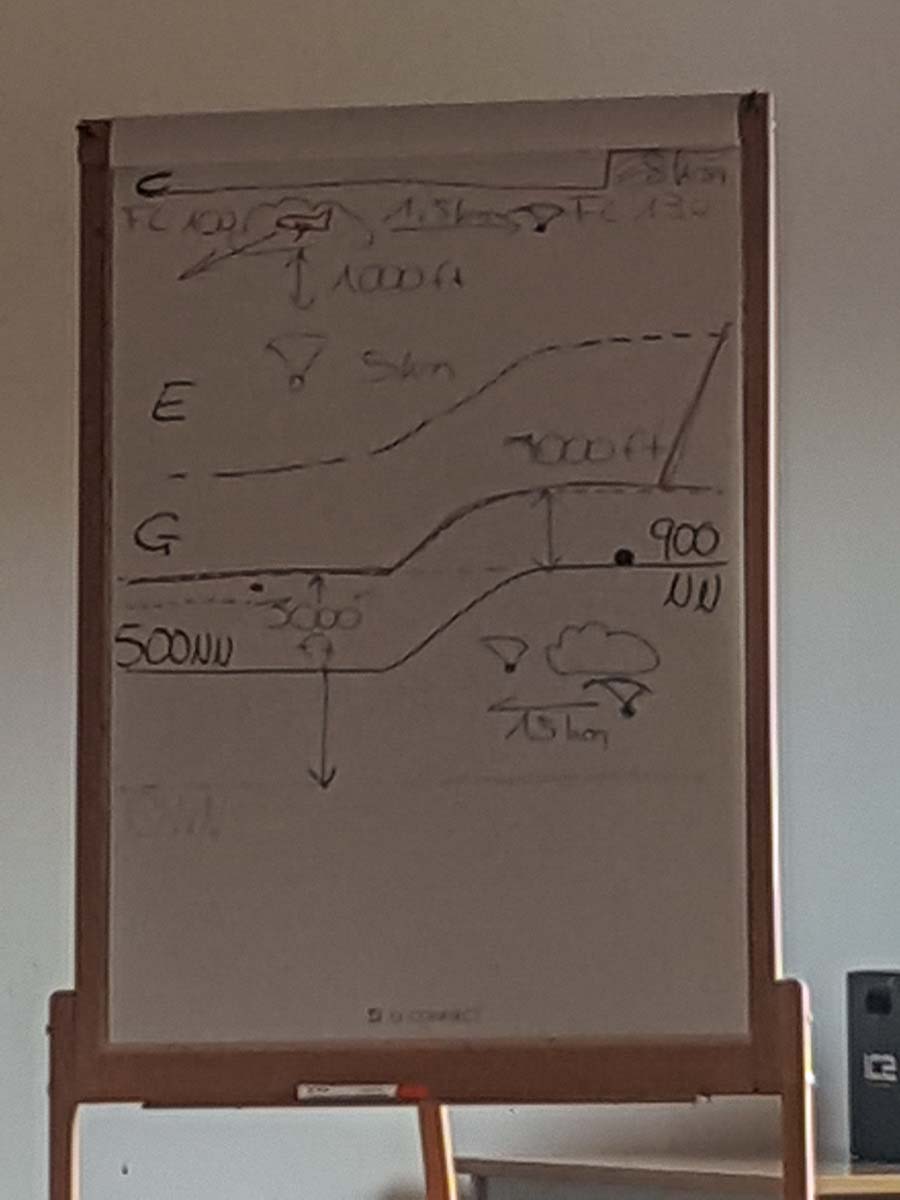 C
8km
FL 100
1,5km
FL 130
1000ft
5km
E
1000ft
G
900
NN
3000
ft
500NN
1,5km